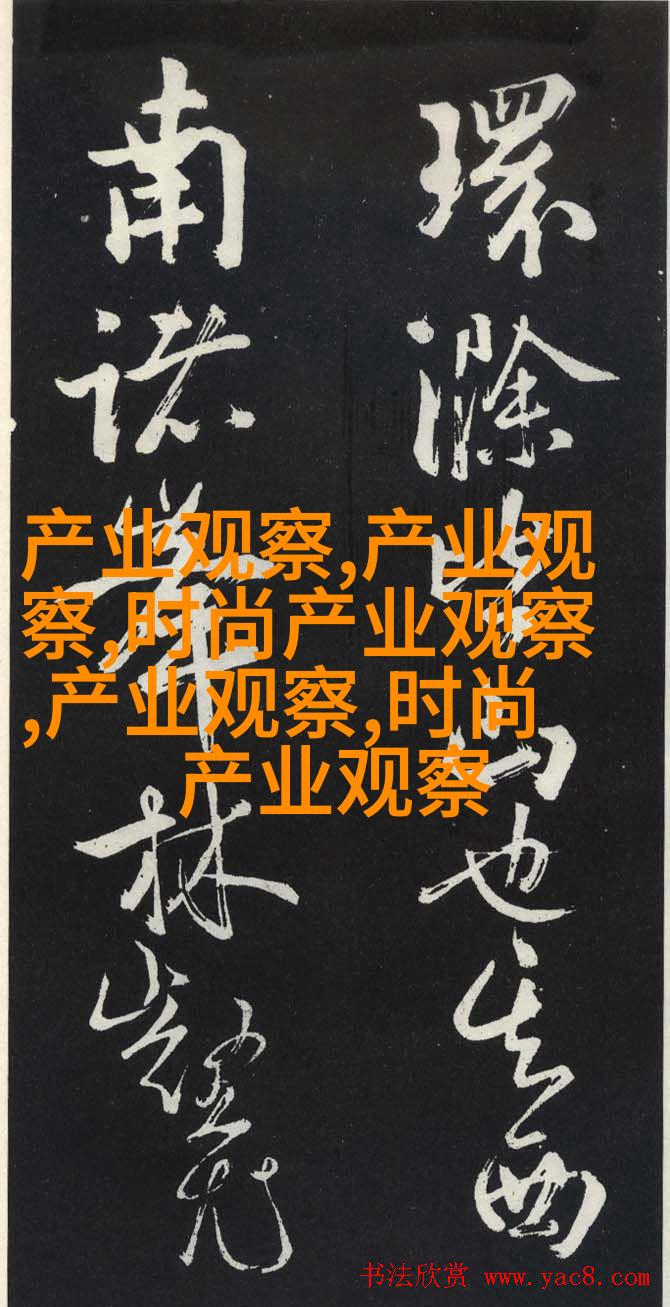 環滁皆山也其西
南諸峯林壑尤
产业观察,产业观
察,时尚产业观察
,产业观察,时尚
产业观察
书法欣赏 www.yac8.com